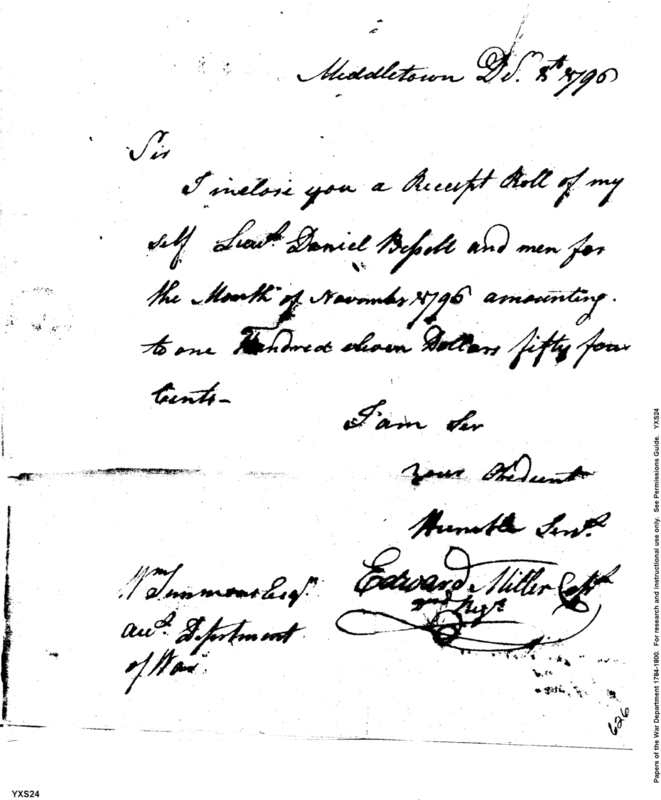 Middletown Dec. 8th 1796
Sir
I inclose you a Receipt Roll of my
self Lieut. Daniel Bissell and men for
the Month of November 1796 amounting
to one Hundred eleven Dollars fifty four
Cents -
I am Sir
your Obedient
Humble Servt.
Edward Miller Capt.
2nd Regt.
Wm Simmons Esqr.
Acct. Department
of War
626
YXS24
Papers of the War Department 1784-1800. For research and instructional use only. See Permissions Guide. YXS24